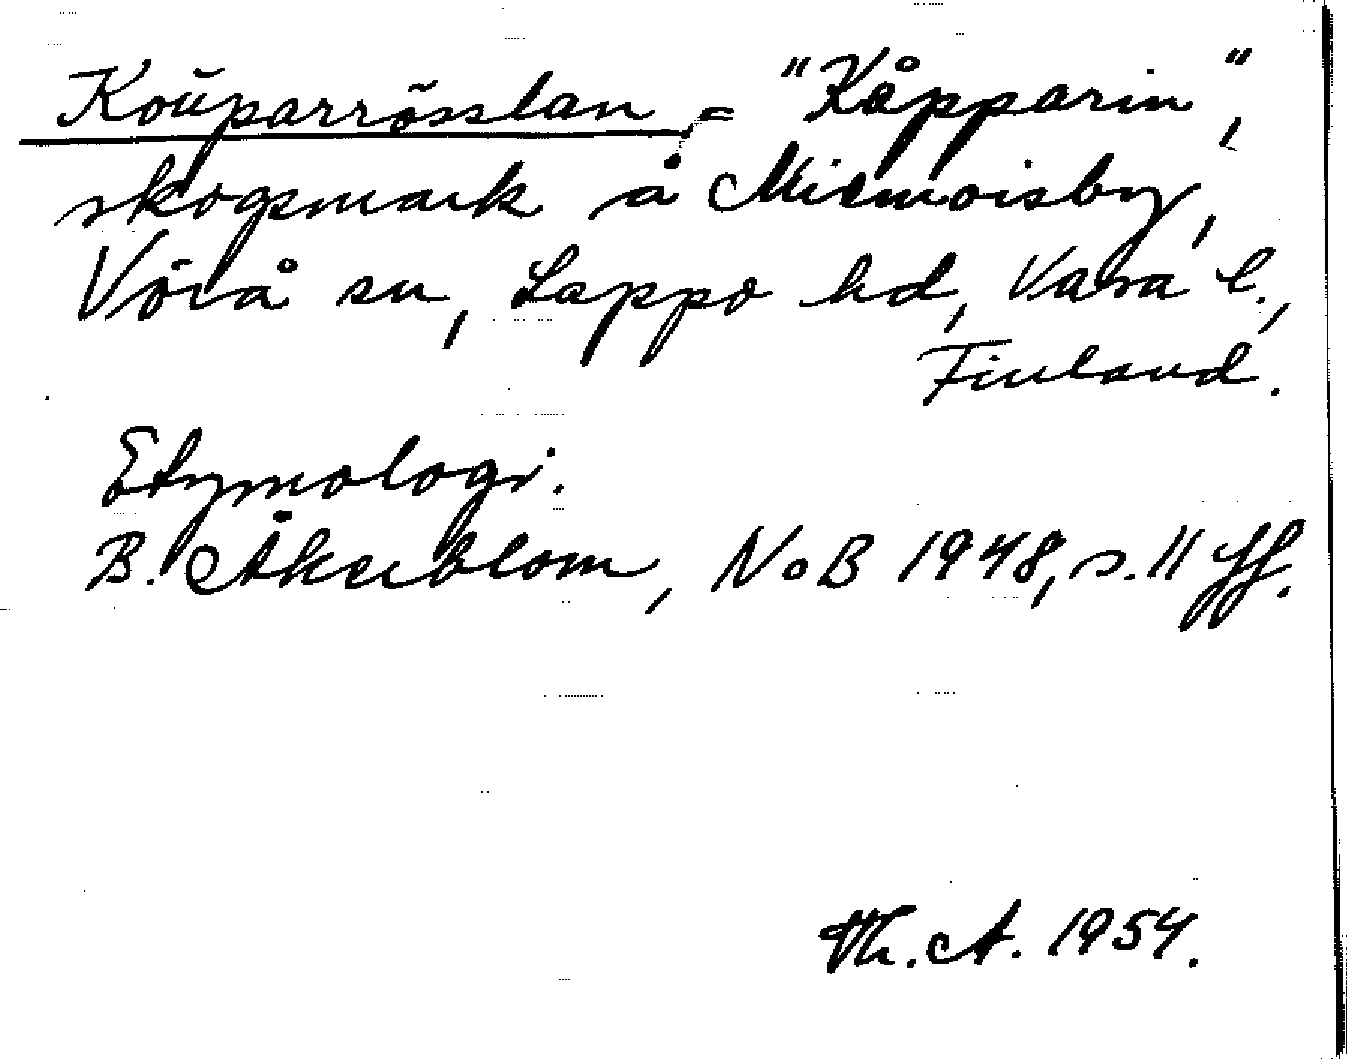 Koŭparrösslan = "Kåpparin",
skogsmark å Miemoisby,
Vörå sn, Lappo hd, Vasa l.,
Finland.
Etymologi.
B. Åkerblom, NoB 1948, s. 11 ff.
Th. A. 1954.